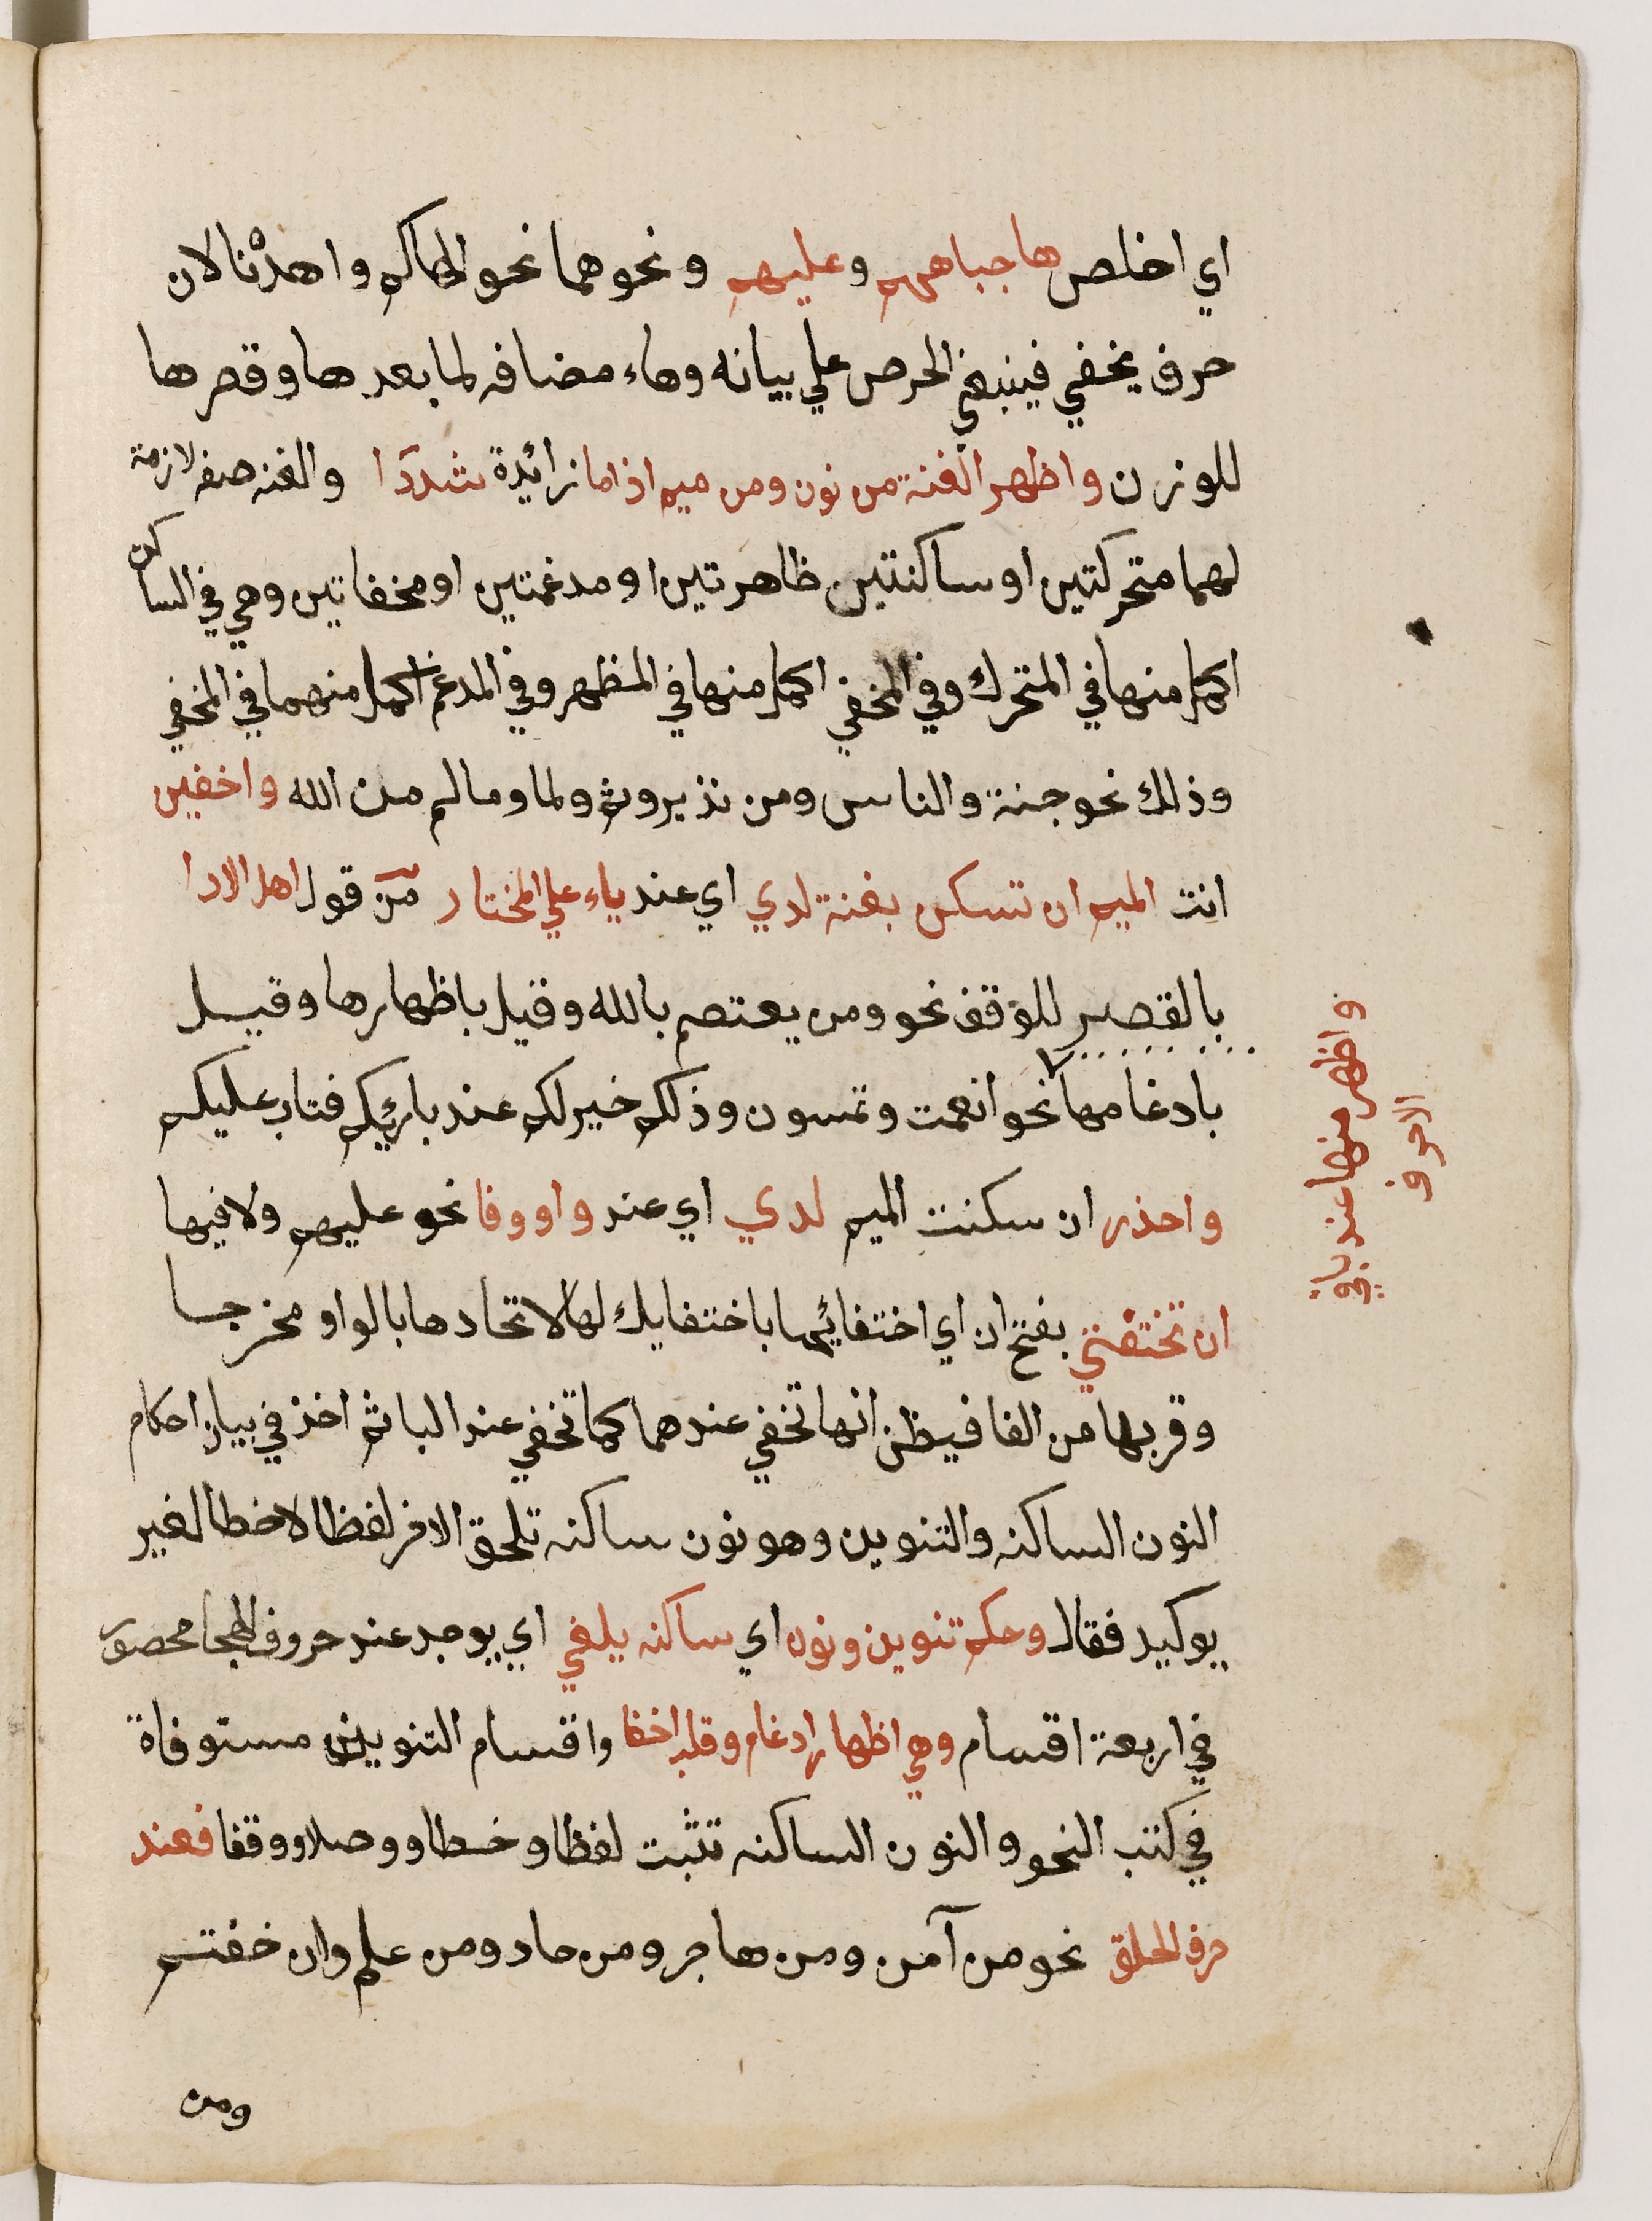 اي اخلص ها جباههم وعليهم ونحوهما نحو الهاكم واهدنا لان
حرف يخفي فينبغي الحرص علي بيانه وهاء مضافه لما بعدها وقصرها
للوزن واظهر الغنة من نون ومن ميم اذا ما زائدة شددا والغنه صفه لازمة
لهما متحركتين او ساكنتين ظاهرتين او مدغمتين او مخفاتين وهي في الساكن
اكمل منها في المتحرك وفي المخفي اكمل منها في المظهر وفي المدغم اكمل منهما في المخفي
وذلك نحو جنة والناس ومن نذير وثم ولما وما لم من الله واخفين
انت الميم ان تسكن بغنة لدي اي عند باء علي المختار من قول اهل الادا
بالقصر للوقف نحو ومن يعتصم بالله وقيل باظهارها وقيل
بادغامها نحو انعمت وتمسون وذلكم خير لكم عند باريكم فتاب عليكم
واحذر ان سكنت الميم لدي اي عند واو وفا نحو عليهم ولا فيها
ان تختفي بفتح ان اي اختفائها باختفايك لها لاتحادها بالواو مخرجا
وقربها من الفا فيظن انها تخفي عندهما كما تخفي عند البا ثم اخذ في بيان احكام
النون الساكنه والتنوين وهو نون ساكنه تلحق الاخر لفظا لا خطا لغير
توكيد فقال وحكم تنوين ونون اي ساكنه يلفي اي يوجد عند حروف الهجا محصور
في اربعة اقسام وهي اظهار ادغام وقلب اخفا واقسام التنوين مستوفاة
في كتب النحو والنون الساكنه تثبت لفظا وخطا ووصلا ووقفا فعند
حرف الحلق نحو من آمن ومن هاجر ومن حاد ومن علم وان خفتم
ومن
واظهرنها عند باقي
الاحرف